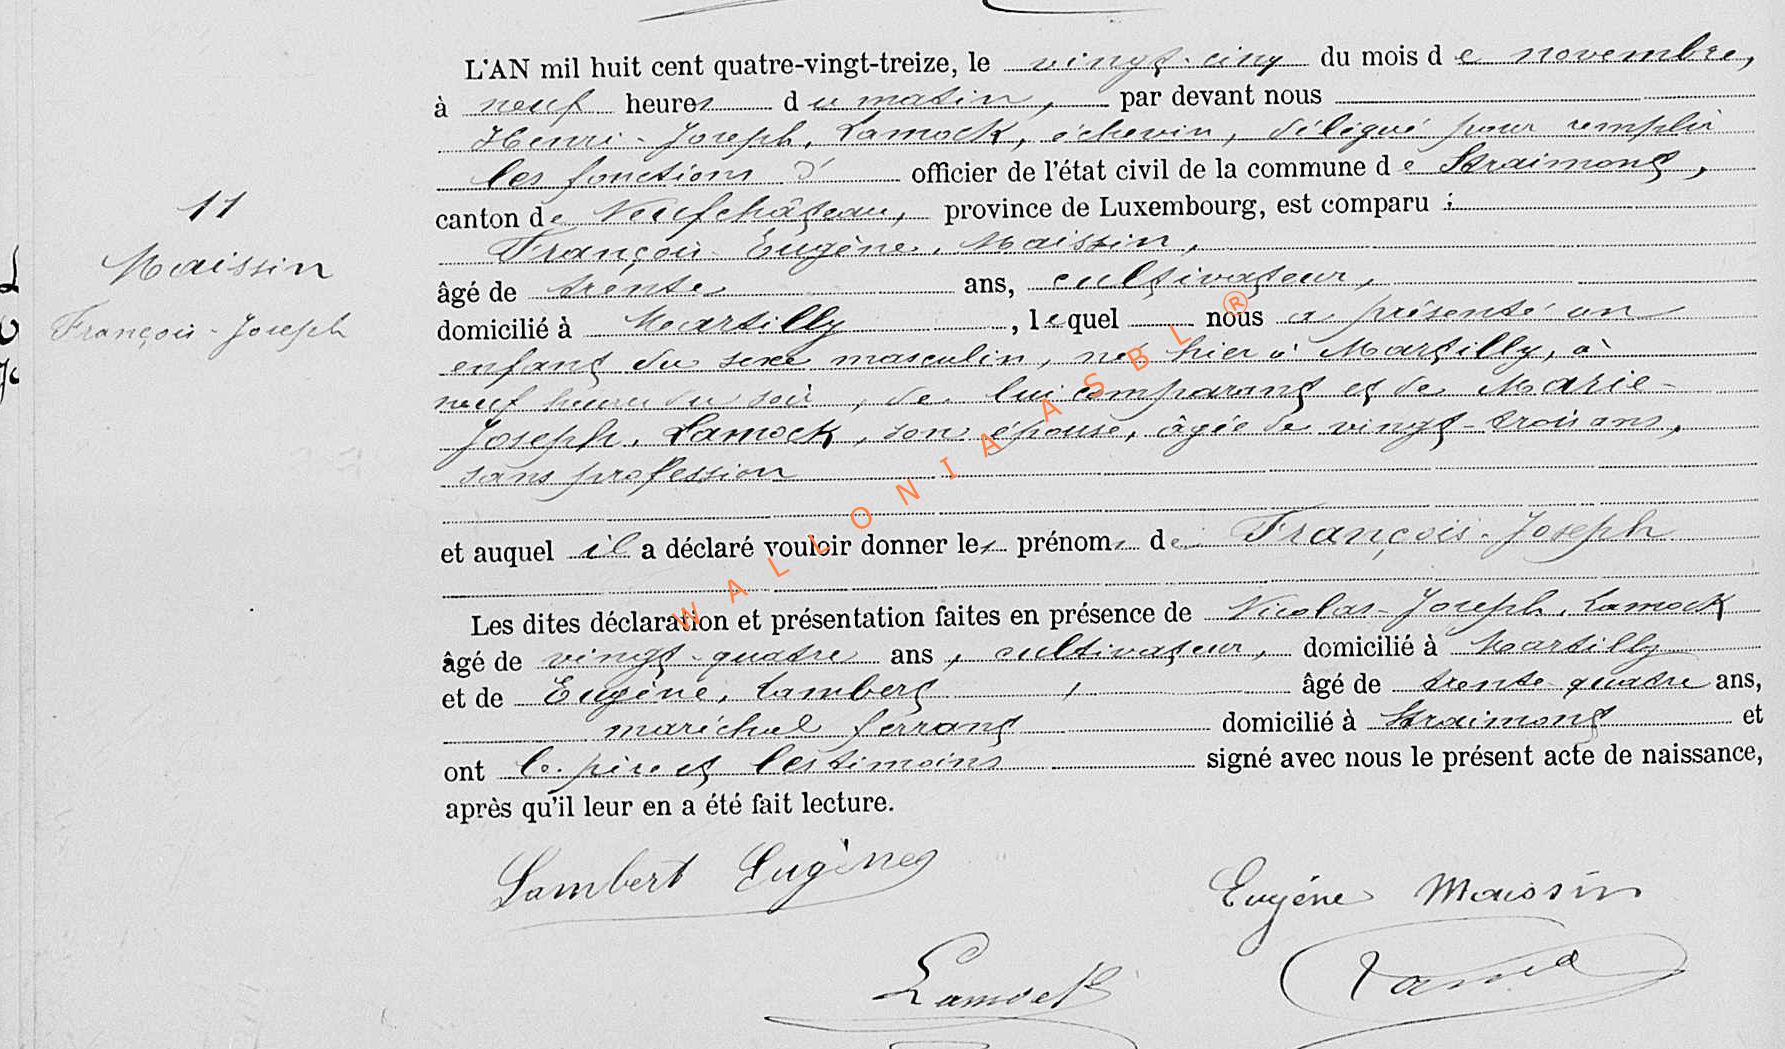 L'AN mil huit cent quatre-vingt-treize, le vingt-cinq du mois de novembre,
à neuf heures du matin, par devant nous
Henri-Joseph, Lamock, échevin, délégué pour remplir
les fonctions d' officier de l'état civil de la commune de Straimont,
canton de Neufchâteau, province de Luxembourg, est comparu :
11
François-Eugène, Maissin,
Maissin
âgé de trente ans, cultivateur,
François-Joseph
domicilié à Martilly, lequel nous a présenté un
enfant du sexe masculin, né hier à Martilly, à
neuf heures du soir, de lui comparant et de Marie-
Joseph, Lamock, son épouse, âgée de vingt-trois ans,
sans profession
et auquel il a déclaré vouloir donner les prénoms de François-Joseph
Les dites déclaration et présentation faites en présence de Nicolas-Joseph, Lamock
âgé de vingt-quatre ans, cultivateur, domicilié à Martilly
et de Eugène, Lambert, âgé de trente-quatre ans,
maréchal ferrant domicilié à Straimont et
ont le père et les témoins signé avec nous le présent acte de naissance,
après qu'il leur en a été fait lecture.
Lambert Eugène
Eugéne Maissin
Lamock
WALLONIA ASBL ®